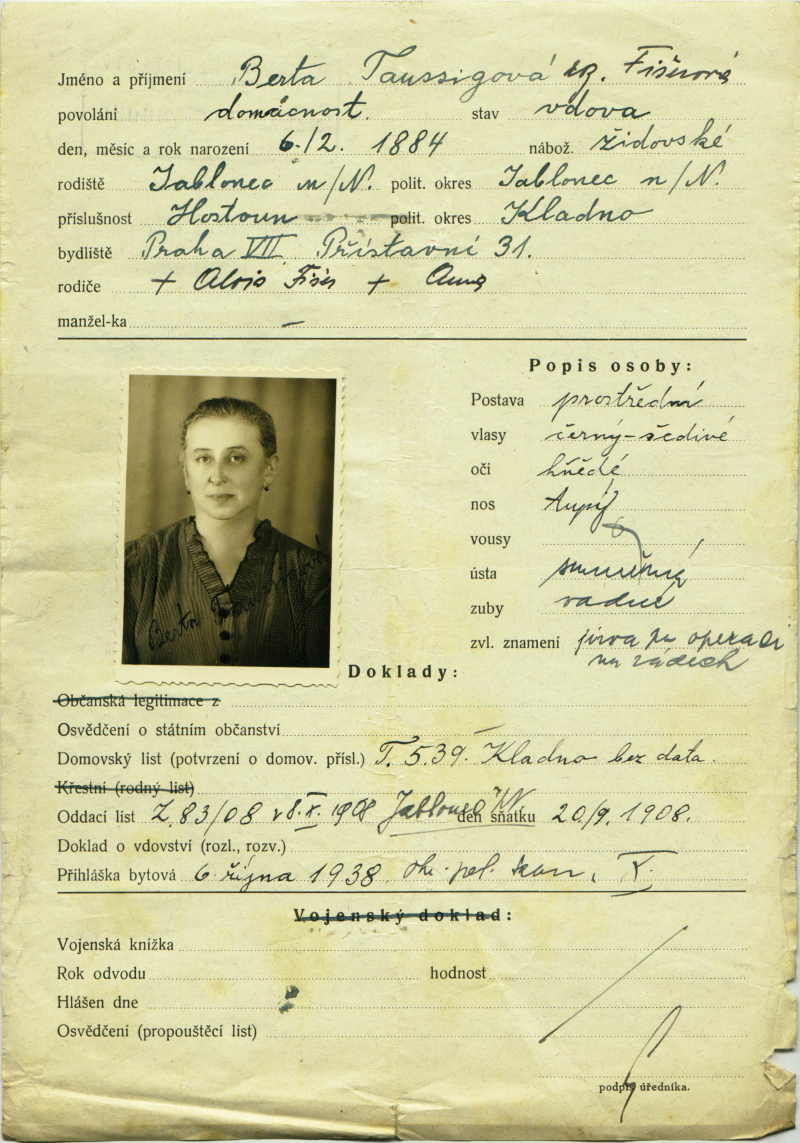 Jméno a příjmení Berta Taussigová roz. Fišerová
povolání domácnost. stav vdova
den, měsíc a rok narození 6./2. 1884 nábož. židovské
rodiště Jablonec n/N. polit. okres Jablonec n/N.
příslušnost Hostoun polit. okres Kladno
bydliště Praha VII Přístavní 31.
rodiče + Alois Fišer + Anna
manžel-ka —
Popis osoby:
Postava prostřední
vlasy černý-šedivé
oči hnědé
nos tupý
vousy
ústa
zuby vadné
zvl. znamení jizva po operaci
na zádech
Berta
Doklady:
Občanská legitimace z
Osvědčení o státním občanství —
Domovský list (potvrzení o domov. přísl.) T. 5.39. Kladno bez data.
Křestní (rodný list)
Oddací list Z. 83/08 v 8. X. 1908 Jablonec n/N den sňatku 20/9. 1908.
Doklad o vdovství (rozl., rozv.)
Přihláška bytová 6 října 1938. pol. kom. X.
Vojenský doklad:
Vojenská knížka
Rok odvodu hodnost
Hlášen dne
Osvědčení (propouštěcí list)
podpis úředníka.